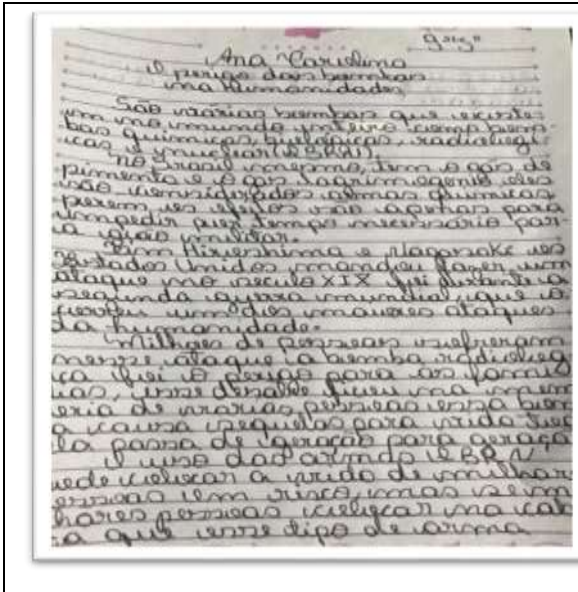 9º ano
Ana Carolina
O perigo das bombas
na humanidades
São várias bombas que existe
um no mundo inteiro como bom
bas químicas, biológicas, radiologi
cas e nuclear (QBRN).
No Brasil mesmo, tem o gás de
pimenta e o gás lagrimogenio eles
são considerados almas químicas,
porem, os efeitos são apenas para
impedir por tempo necessário par
a ação militar.
Em Hiroshima e Nagasake os
Estados Unidos mandou fazer um
ataque no século XIX foi durante a
segunda guerra mundial, que o
correu um dos maiores ataques
da humanidade.
Milhões de pessoas sofreram
nesse ataque a bomba radiolog
ca foi o perigo para as famí
ias, esse desastre ficou na mem
oria de varias, pessoas essa bom
a causa sequelas para vida toda
la passa de geração para geraçã
O uso das armas QBRN
ode colocar a vida de milhar
essoas em risco, mas sem
hares pessoas colocar na cab
ça que esse tipo de arma